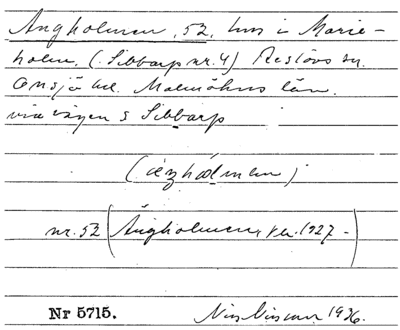 Ängholmen, 52, hus i Marie-
holm, (Sibbarp nr. 4) Reslövs sn.
Onsjö hd. Malmöhus län.
via vägen s Sibbarp
nr. 52 (Ängholmen, 1927-)
Nr 5715. 1936.